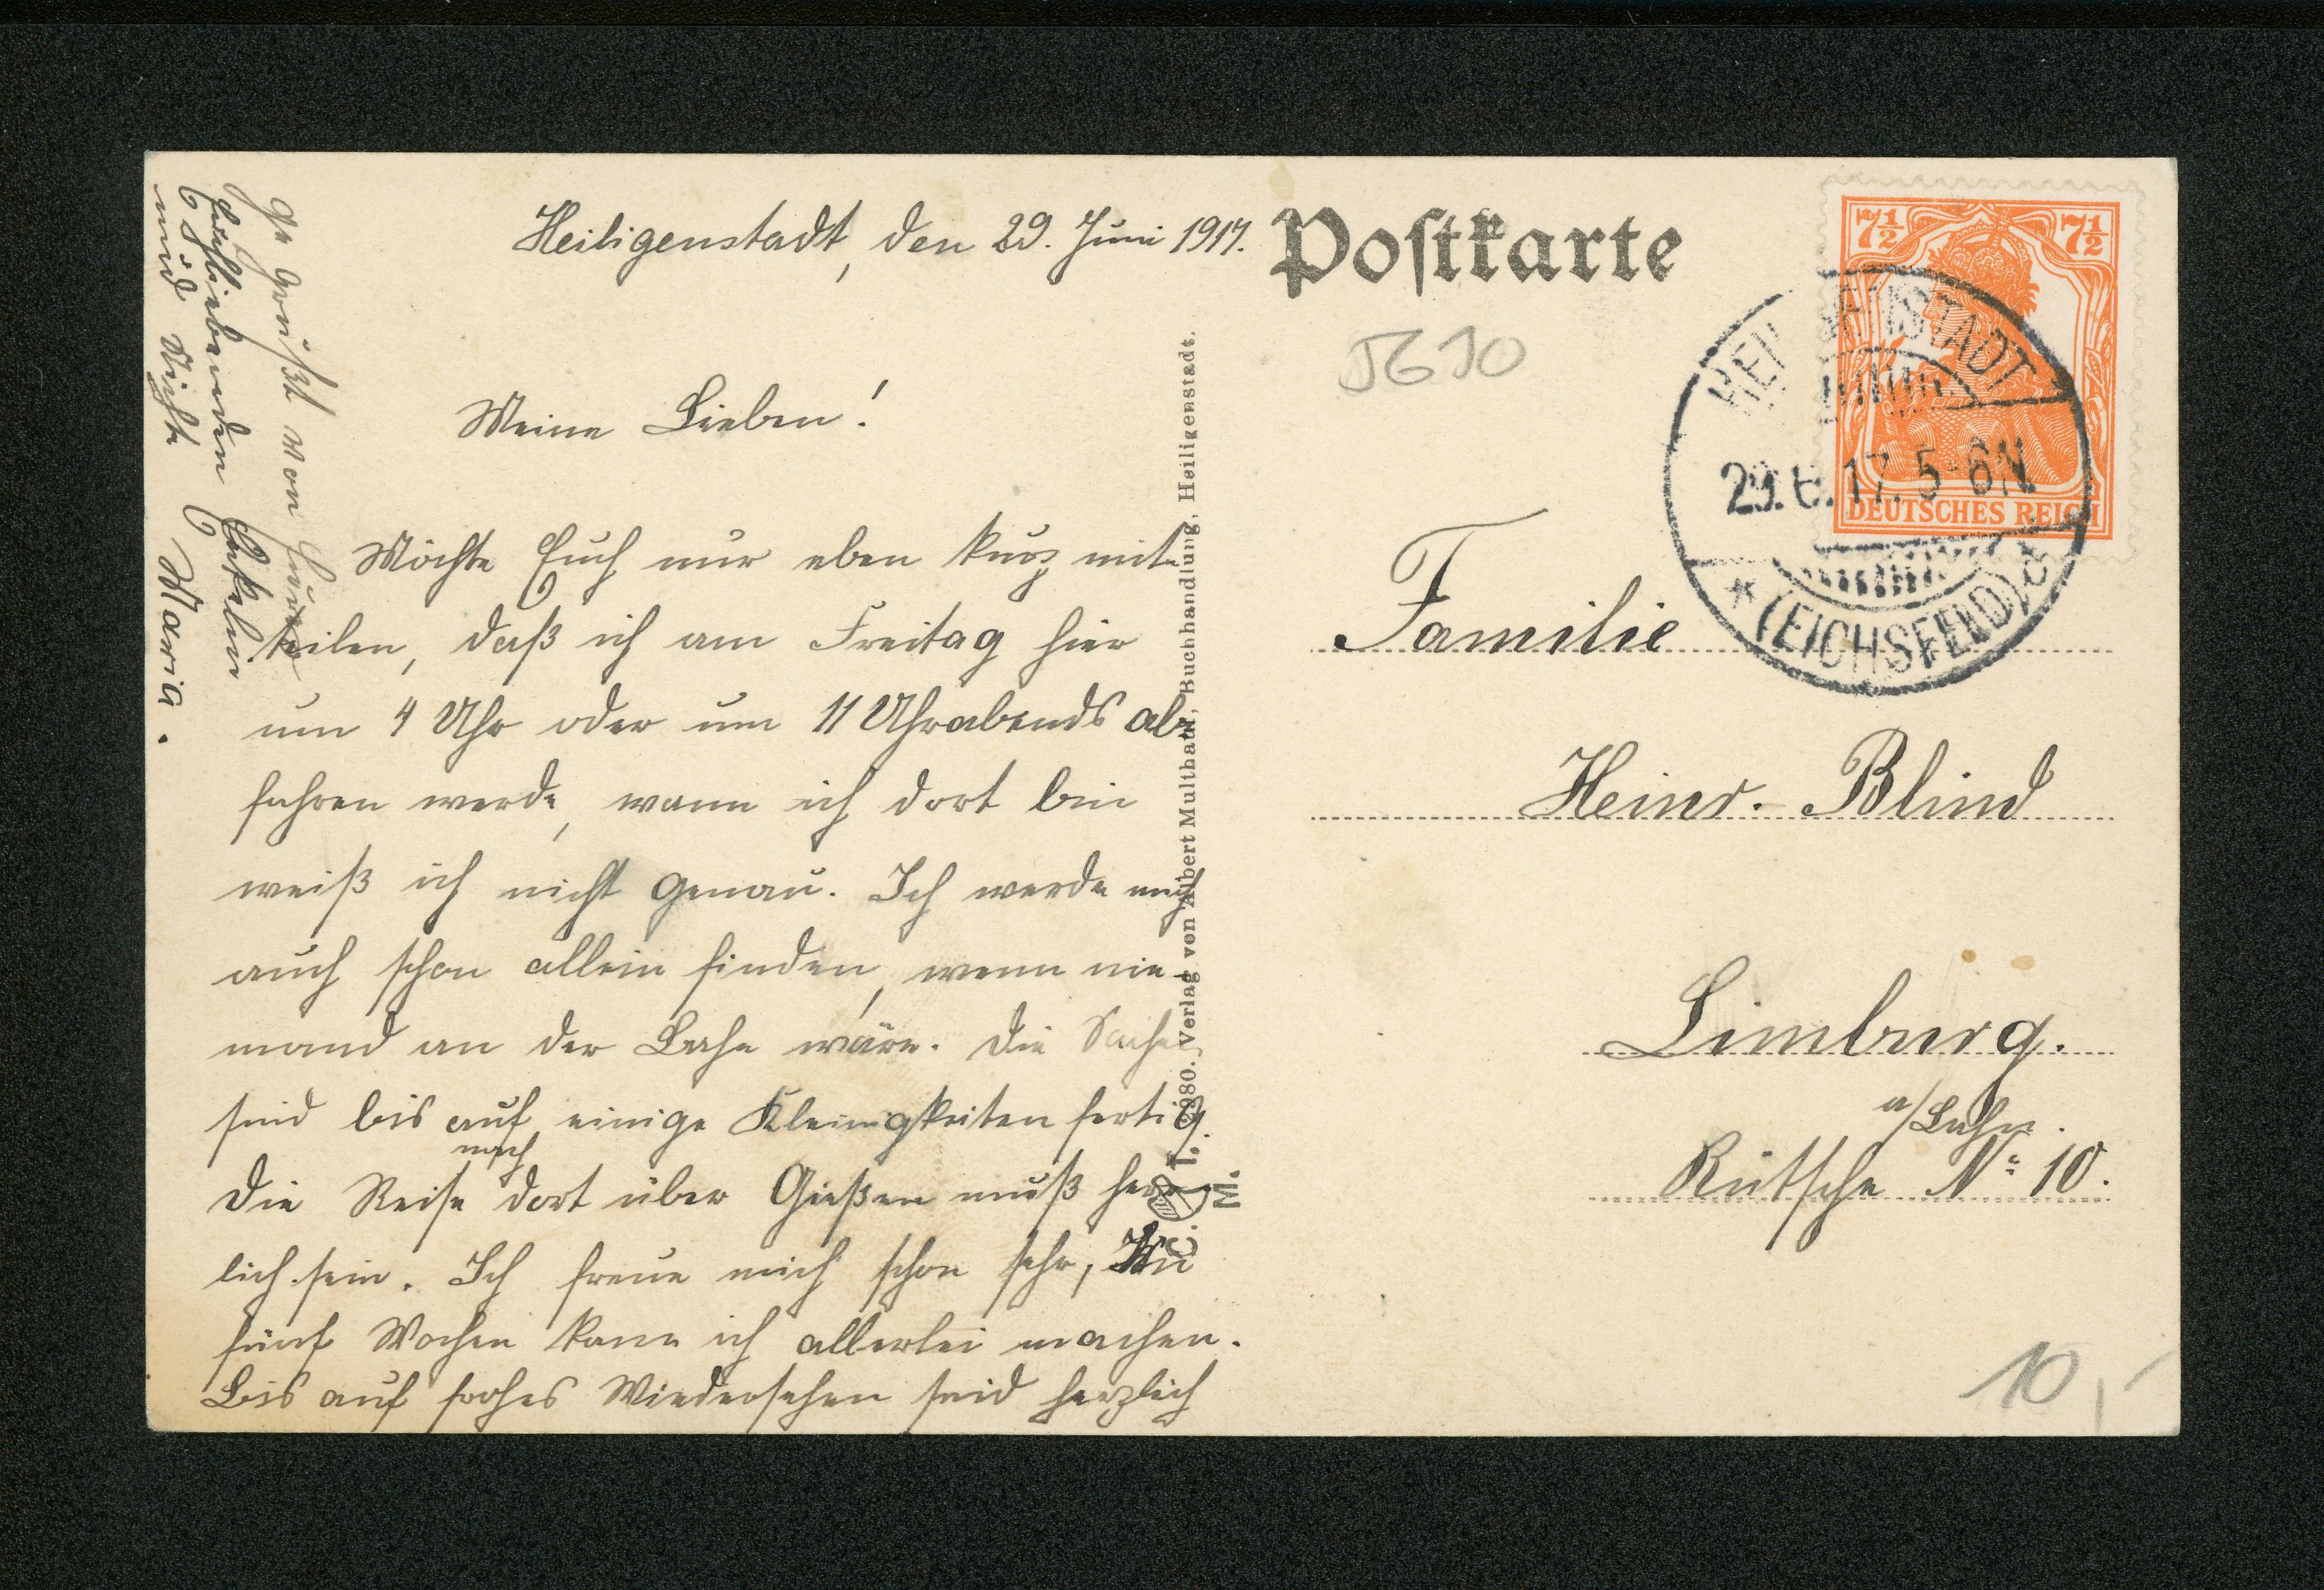 Heiligenstadt, den 29. Juni 1917.
Meine Lieben!
Möchte Euch nur eben kurz mit-
teilen, daß ich am Freitag hier
um 4 Uhr oder um 11 Uhr abends ab-
fahren werde, wann ich dort bin
weiß ich nicht genau. Ich werde mich
auch schon allein finden, wenn nie-
mand an der Bahn wäre. Die Sachen
sind bis auf einige Kleinigkeiten fertig.
Die Reise nach dort über Gießen muß herr-
lich sein. Ich freue mich schon sehr, In
fünf Wochen kann ich allerlei machen.
Bis auf frohes Wiedersehen seid herzlich
gegrüßt von Eurer
Euchliebenden Enkelin
und Nichte Maria.
C. T. M. 2980. Verlag von Albert Multhauf, Buchhandlung, Heiligenstadt.
Postkarte
5610
7½ 7½
DEUTSCHES REICH
HEILIGENSTADT
29.6.17. 5-6N
* (EICHSFELD)
Familie
Heinr. Blind
Limburg.
a/Lahn.
Rütsche No 10.
10,-